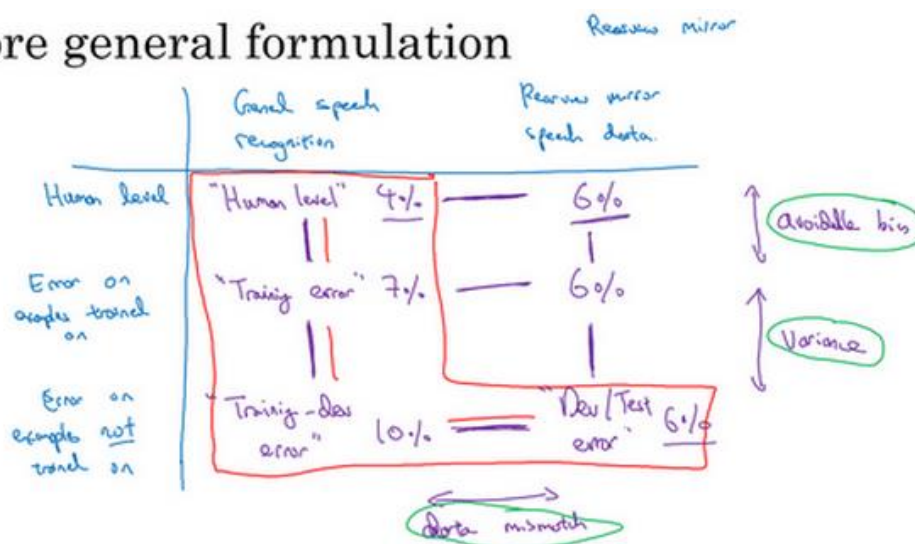 ore general formulation
Rearview mirror
General speech
recognition
Rearview mirror
speech data.
Human level
"Human level" 4%
6%
avoidable bias
Error on
examples trained
on
"Training error" 7%
6%
Variance
Error on
examples not
trained on
"Training-dev
error" 10%
"Dev/Test
error" 6%
data mismatch